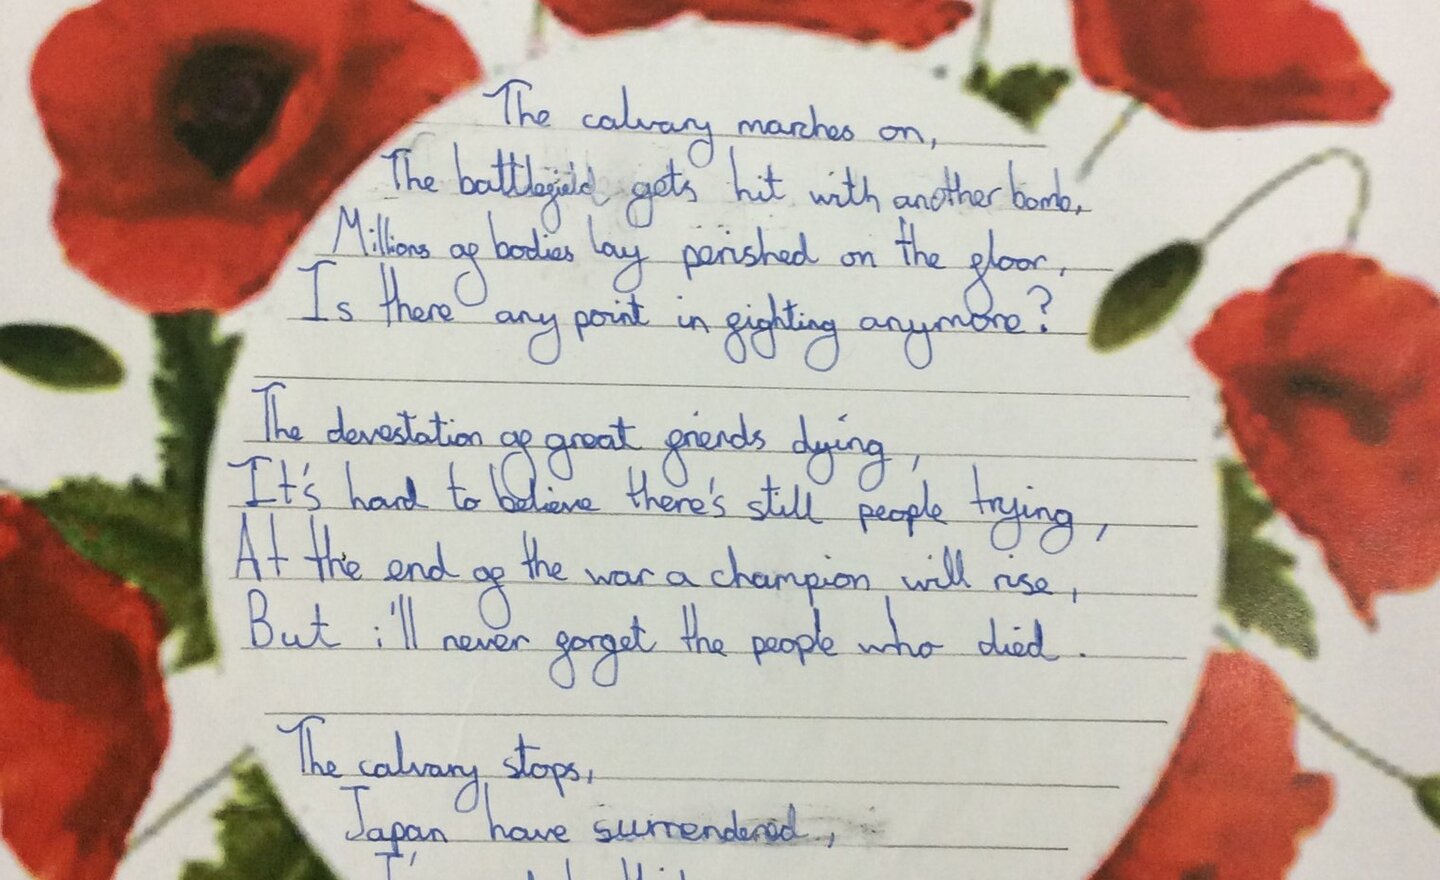 The calvary marches on,
The battlefield gets hit with another bomb,
Millions of bodies lay perished on the floor,
Is there any point in fighting anymore?
The devestation of great friends dying,
It's hard to believe there's still people trying,
At the end of the war a champion will rise,
But i'll never forget the people who died.
The calvary stops,
Japan have surrendered,